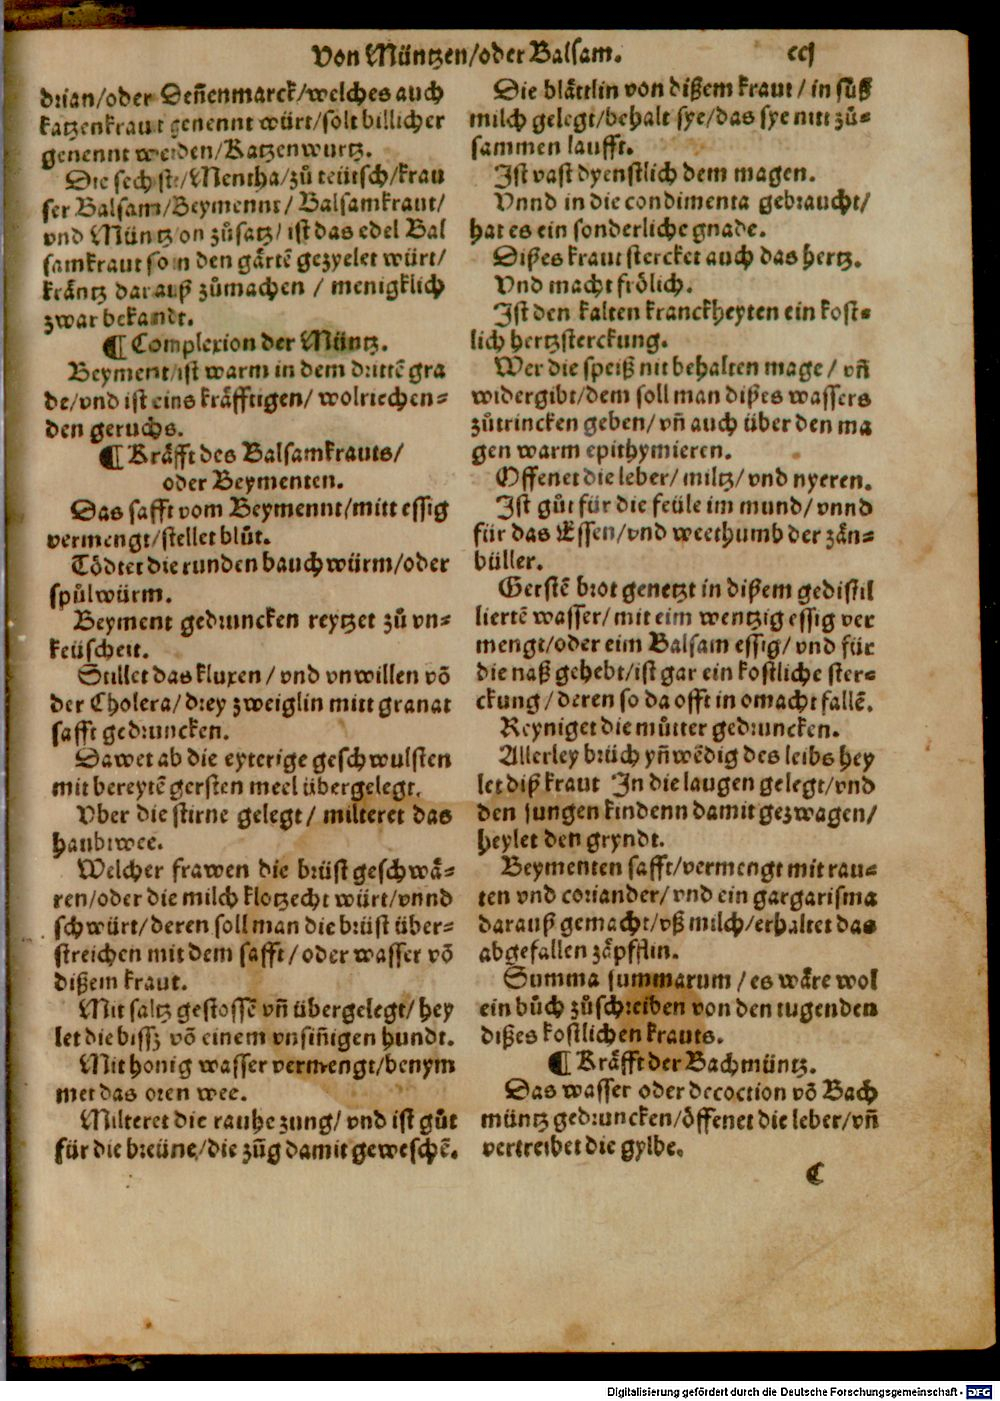 Von Müntzen/oder Balsam. ccj
drian/oder Deñenmarck/welches auch
katzenkraut genennt würt/solt billicher
genennt werden/Katzenwurtz.
Die sechste/Mentha/zů teütsch/krau
ser Balsam/Beymennt/Balsamkraut/
vnd Müntz on zůsatz/ist das edel Bal
samkraut so in den gårtē gezyelet würt/
kråntz darauß zůmachen / menigklich
zwar bekandt.
¶ Complexion der Müntz.
Beyment/ist warm in dem drittē gra
de/vnd ist eins kråfftigen/wolriechen-
den geruchs.
¶ Kråfft des Balsamkrauts/
oder Beymenten.
Das safft vom Beymennt/mitt essig
vermengt/stellet blůt.
Tödtet die runden bauchwürm/oder
spůlwürm.
Beyment gedruncken reytzet zů vn-
keüscheit.
Stillet das kluxen / vnd vnwillen vō
der Cholera/drey zweiglin mitt granat
safft gedruncken.
Dawet ab die eyterige geschwulsten
mit bereytē gersten meel übergelegt.
Vber die stirne gelegt / milteret das
haubtwee.
Welcher frawen die brüst geschwå-
ren/oder die milch klotzecht würt/vnnd
schwürt/deren soll man die brüst über-
streichen mit dem safft/oder wasser vō
dißem kraut.
Mit saltz gestossē vñ übergelegt/hey
let die bissz vō einem vnsiñigen hundt.
Mit honig wasser vermengt/benym
met das oren wee.
Milteret die rauhe zung/ vnd ist gůt
für die breüne/die züg damit geweschē.
Die blåttlin von dißem kraut / in sůß
milch gelegt/behalt sye/das sye nitt zů-
sammen laufft.
Ist vast dyenstlich dem magen.
Vnnd in die condimenta gebraucht/
hat es ein sonderliche gnade.
Dißes kraut stercket auch das hertz.
Vnd macht frölich.
Ist den kalten kranckheyten ein kost-
lich hertzsterckung.
Wer die speiß nit behalten mage / vñ
widergibt/dem soll man dißes wassers
zůtrincken geben/vñ auch über den ma
gen warm epithymieren.
Offenet die leber/ miltz/ vnd nyeren.
Ist gůt für die feüle im mund/ vnnd
für das Essen/vnd weethumb der zån-
büller.
Gerstē brot genetzt in dißem gedistil
liertē wasser/ mit eim wentzig essig ver
mengt/oder eim Balsam essig/ vnd für
die naß gehebt/ist gar ein kostliche ster-
ckung/ deren so da offt in omacht fallē.
Reyniget die můtter gedruncken.
Allerley brüch yñwēdig des leibs hey
let diß kraut In die laugen gelegt/vnd
den jungen kindenn damit gezwagen/
heylet den gryndt.
Beymenten safft/vermengt mit rau-
ten vnd coriander/ vnd ein gargarisma
darauß gemacht/vß milch/erhaltet das
abgefallen zåpfflin.
Summa summarum / es wåre wol
ein bůch zůschreiben von den tugenden
dißes kostlichen krauts.
¶ Kråfft der Bachmüntz.
Das wasser oder decoction vō Bach
müntz gedruncken/öffenet die leber/vñ
vertreibet die gylbe.
C
Digitalisierung gefördert durch die Deutsche Forschungsgemeinschaft - DFG